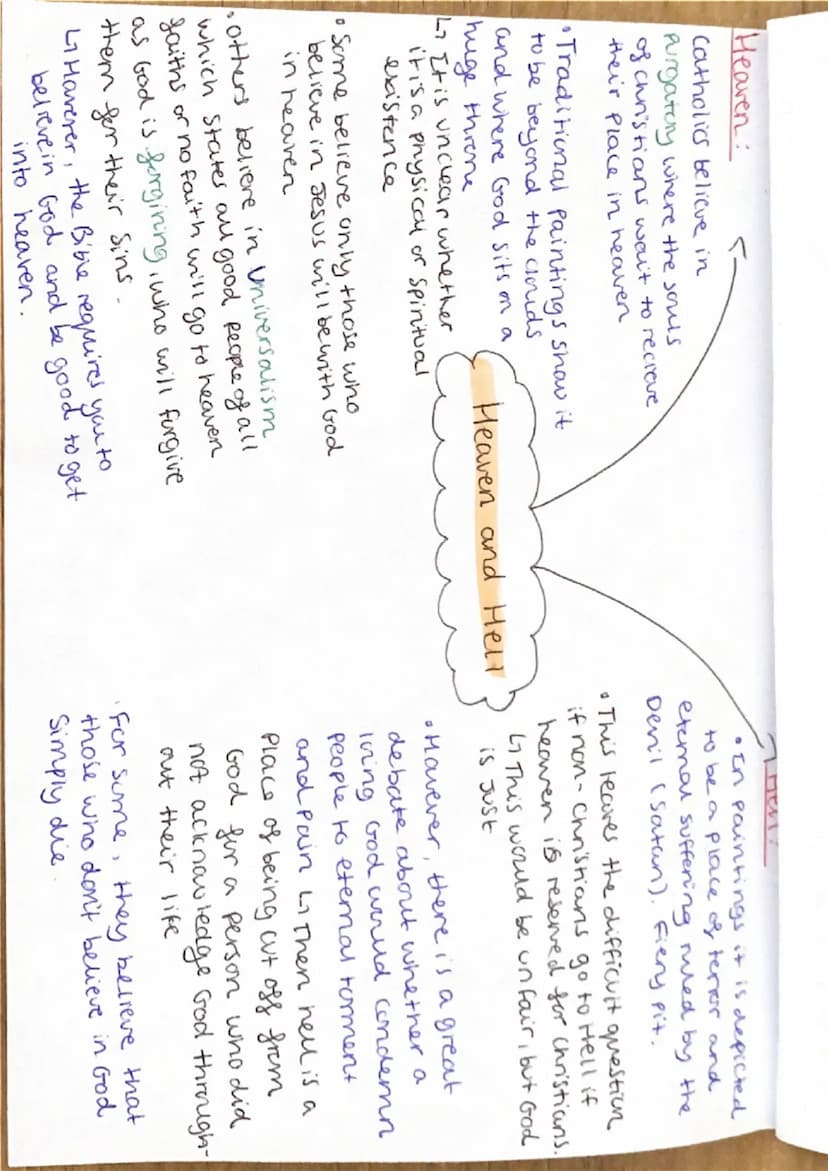 Heaven and Hell
Heaven:
Catholics believe in
purgatory where the souls
of christians wait to recieve
their place in heaven
• Traditional paintings show it
to be beyond the clouds
and where God sits on a
huge throne
↳ It is unclear whether
it is a physical or spiritual
existence
• Some believe only those who
believe in Jesus will be with God
in heaven
• others believe in Universalism
which states all good people of all
faiths or no faith will go to heaven
as God is forgiving, who will forgive
them for their sins.
↳ However, the Bible requires you to
believe in God and be good to get
into heaven.
Hell:
• In paintings it is depicted
to be a place of terror and
eternal suffering ruled by the
Devil (Satan). Fiery pit.
• This leaves the difficult question
if non-christians go to Hell if
heaven is reserved for christians.
↳ This would be unfair, but God
is just
• However, there is a great
debate about whether a
loving God would condemn
people to eternal torment
and pain ↳ Then hell is a
place of being cut off from
God for a person who did
not acknowledge God through-
out their life
• For some, they believe that
those who don't believe in God
simply die.